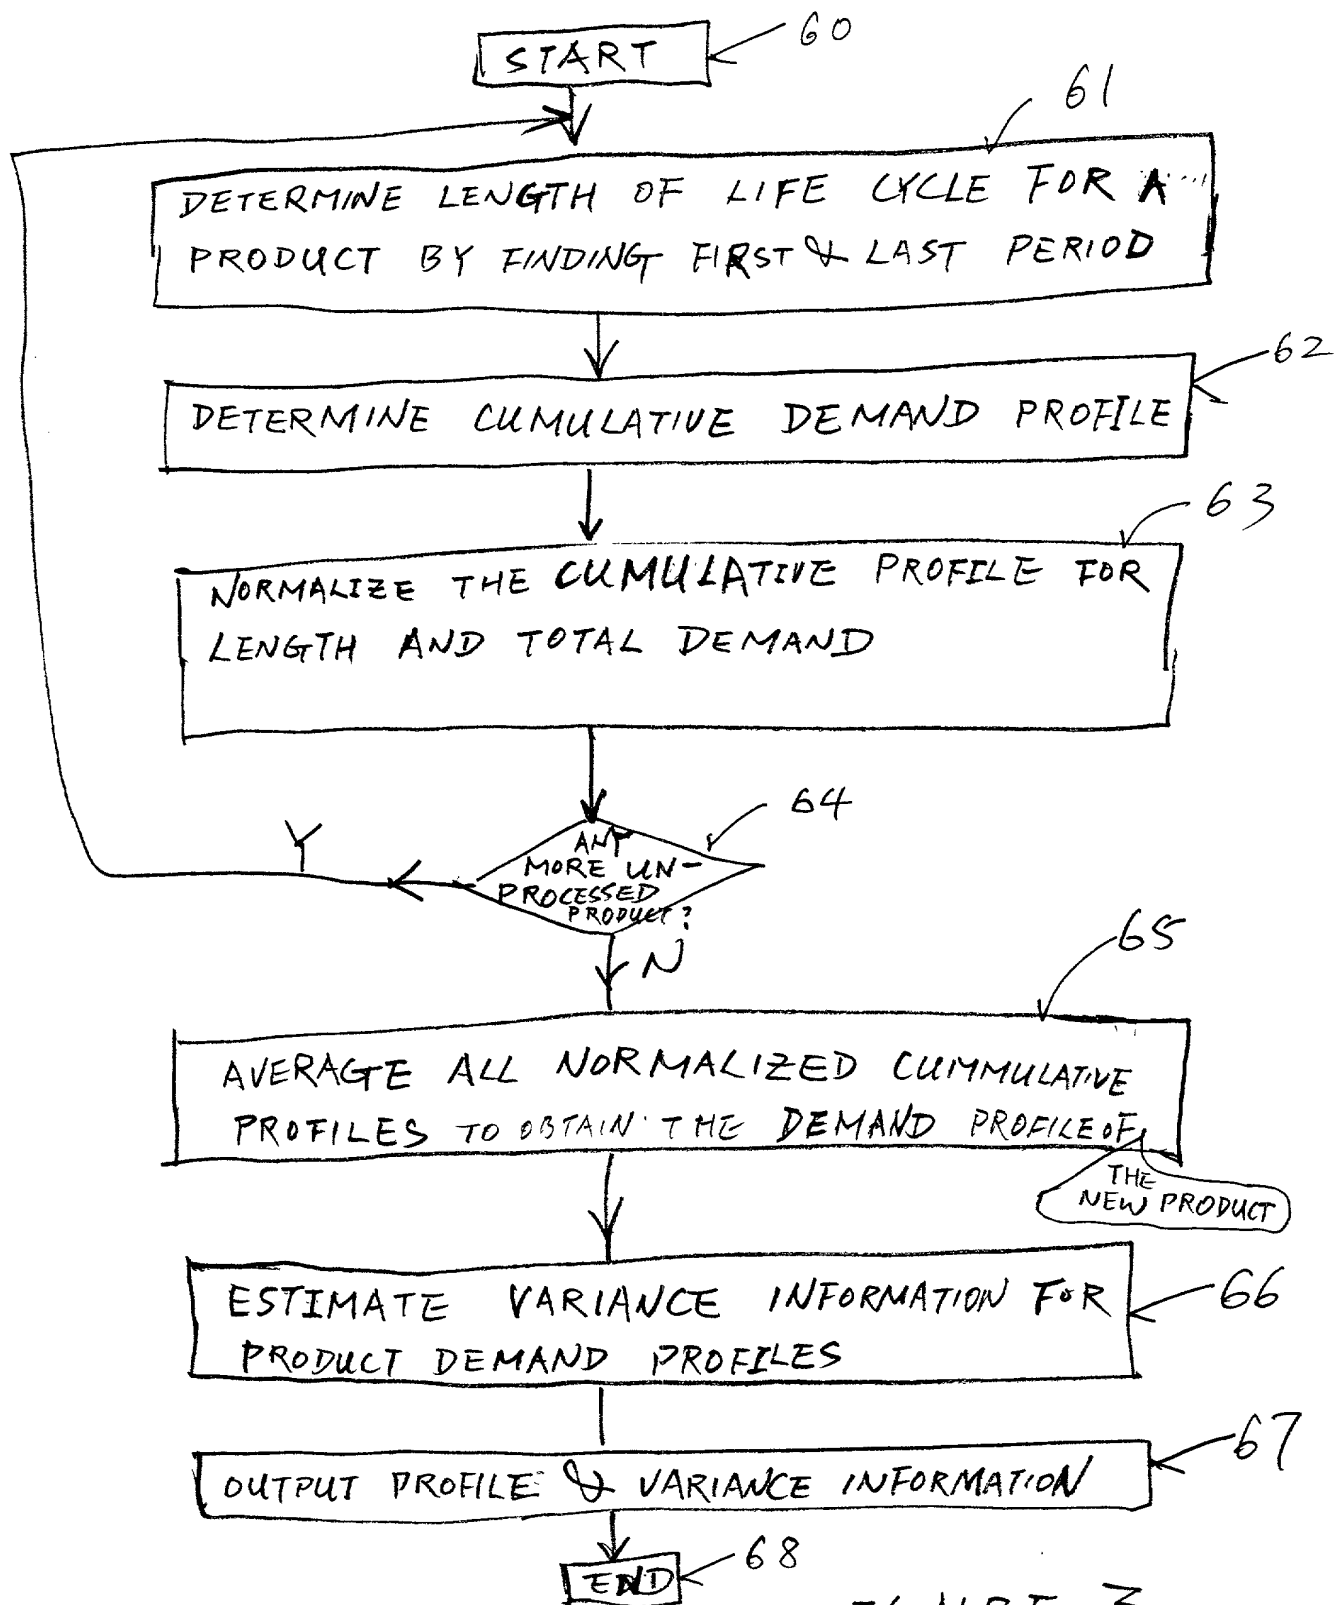 START
60
61
DETERMINE LENGTH OF LIFE CYCLE FOR A
PRODUCT BY FINDING FIRST & LAST PERIOD
62
DETERMINE CUMULATIVE DEMAND PROFILE
63
NORMALIZE THE CUMULATIVE PROFILE FOR
LENGTH AND TOTAL DEMAND
64
ANY
MORE UN-
PROCESSED
PRODUCT?
Y
N
65
AVERAGE ALL NORMALIZED CUMMULATIVE
PROFILES TO OBTAIN THE DEMAND PROFILE OF
THE
NEW PRODUCT
66
ESTIMATE VARIANCE INFORMATION FOR
PRODUCT DEMAND PROFILES
67
OUTPUT PROFILE & VARIANCE INFORMATION
68
END
3